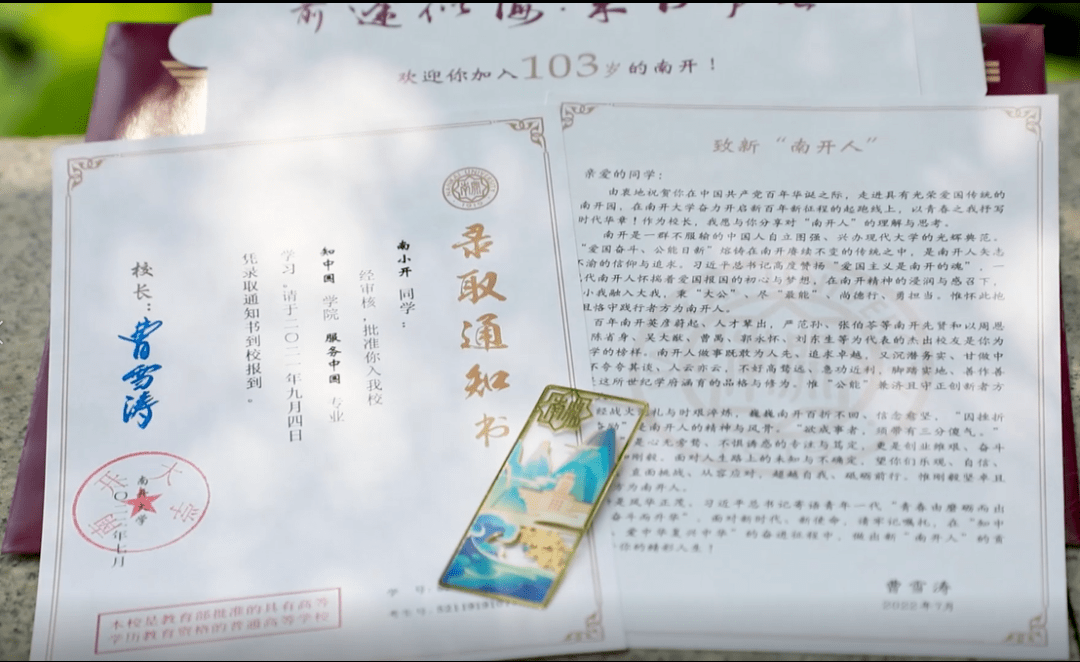 欢迎你加入103岁的南开！
录取通知书
南小开 同学：
经审核，批准你入我校
知中国 学院 服务中国 专业
学习。请于二〇二一年九月四日
凭录取通知书到校报到。
校长：曹雪涛
南开大学
南开大学
二〇二一年七月
本校是教育部批准的具有高等
学历教育资格的普通高等学校
学号
考生号
致新“南开人”
亲爱的同学：
由衷地祝贺你在中国共产党百年华诞之际，走进具有光荣爱国传统的
南开园，在南开大学奋力开启新百年新征程的起跑线上，以青春之我抒写
时代华章！作为校长，我愿与你分享对“南开人”的理解与思考。
南开是一群不服输的中国人自立图强、兴办现代大学的光辉典范。
“爱国奋斗、公能日新”熔铸在南开赓续不变的传统之中，是南开人矢志
不渝的信仰与追求。习近平总书记高度赞扬“爱国主义是南开的魂”，一
代南开人怀揣着爱国报国的初心与梦想，在南开精神的浸润与感召下，
小我融入大我，秉“大公”、尽“最能”、尚德行、勇担当。惟怀此抱
且恪守践行者方为南开人。
百年南开英彦蔚起、人才辈出，严范孙、张伯苓等南开先贤和以周恩
陈省身、吴大猷、曹禺、郭永怀、刘东生等为代表的杰出校友是你为
学的榜样。南开人做事既敢为人先、追求卓越，又沉潜务实、甘做中
不夸夸其谈、人云亦云，不好高骛远、急功近利，脚踏实地、善作善
是这所世纪学府涵育的品格与修为。惟“公能”兼济且守正创新者方
经战火洗礼与时艰淬炼，巍巍南开百折不回、信念愈坚，“因挫折
奋励”是南开人的精神与风骨。“欲成事者，须带有三分傻气。”
是心无旁骛、不惧诱惑的专注与笃定，更是创业维艰、奋斗
刚毅。面对人生路上的未知与不确定，望你们乐观、自信、
直面挑战、从容应对，超越自我、砥砺前行。惟刚毅坚卓且
方为南开人。
是风华正茂，习近平总书记寄语青年一代“青春由磨砺而出
奋斗而升华”。面对新时代、新使命，请牢记嘱托，在“知中
，爱中华复兴中华”的奋进征程中，做出新“南开人”的贡
你的精彩人生！
曹雪涛
2022年7月